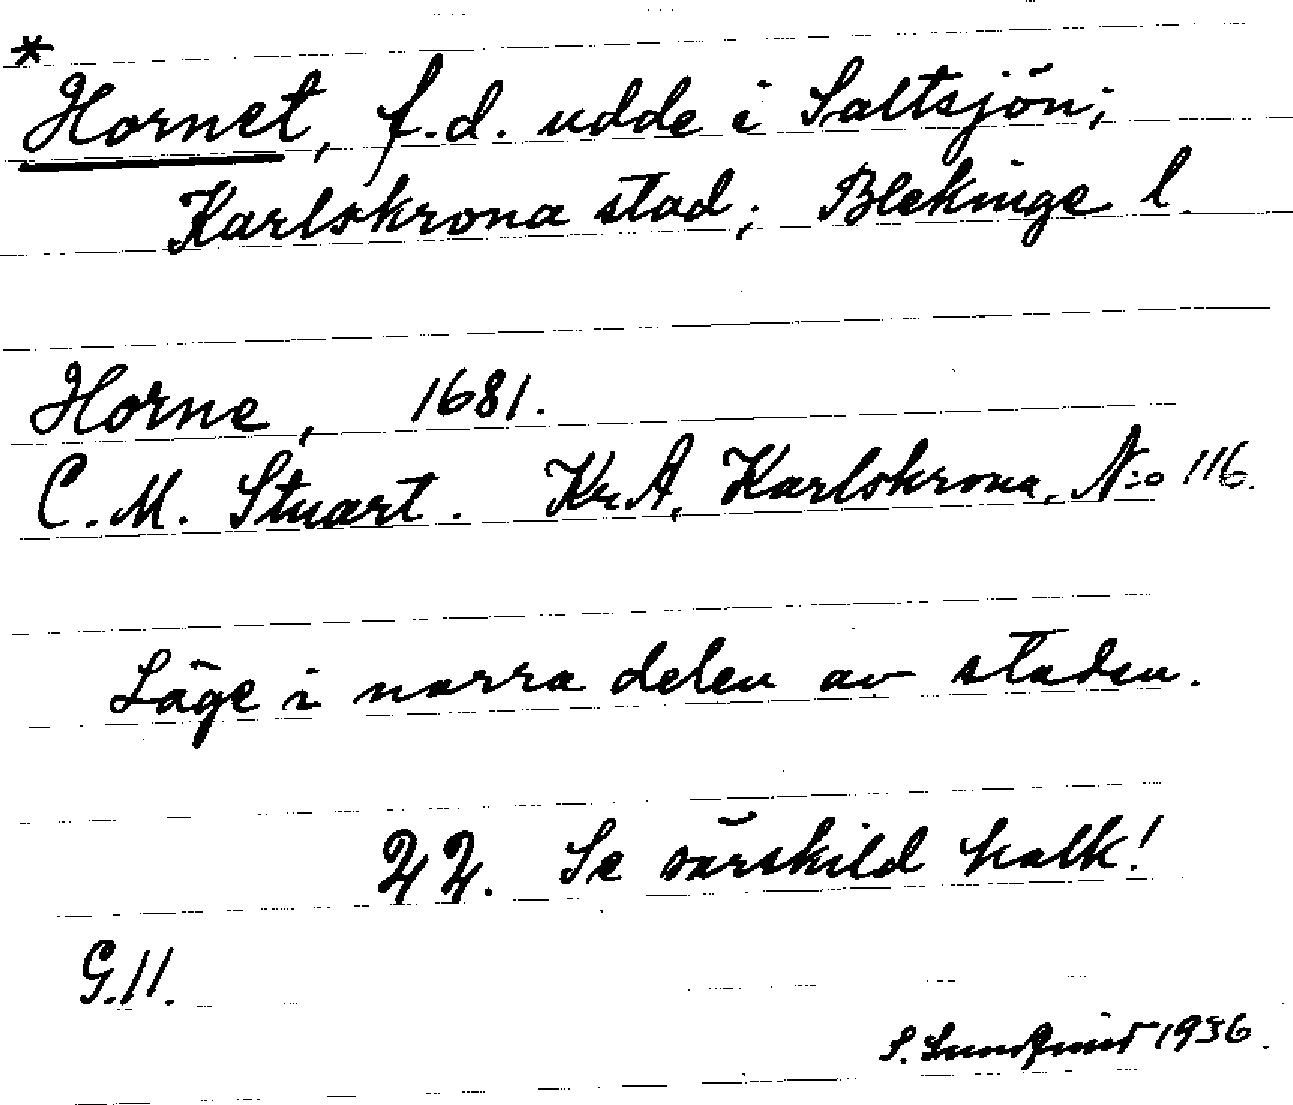 *
Hornet, f.d. udde i Saltsjön;
Karlskrona stad; Blekinge l.
Horne, 1681.
C. M. Stuart. Kr.A, Karlskrona, N:o 116.
Läge i norra delen av staden.
Se särskild kalk!
G.11.
S. Lundqvist 1936.